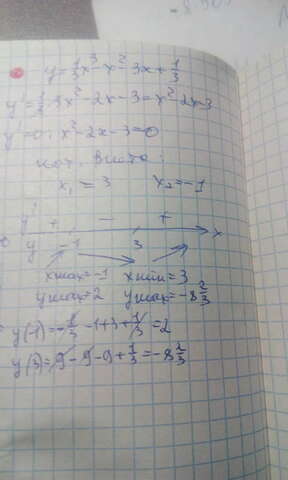 y = 1/3 x³ - x² - 3x + 1/3
y' = 1/3 · 3x² - 2x - 3 = x² - 2x - 3
y' = 0: x² - 2x - 3 = 0
x₁ = 3 x₂ = -1
y' + - +
y -1 3 x
xmax = -1 xmin = 3
ymax = 2 ymax = -8 2/3
y(-1) = -1/3 - 1 + 3 + 1/3 = 2
y(3) = 9 - 9 - 9 + 1/3 = -8 2/3